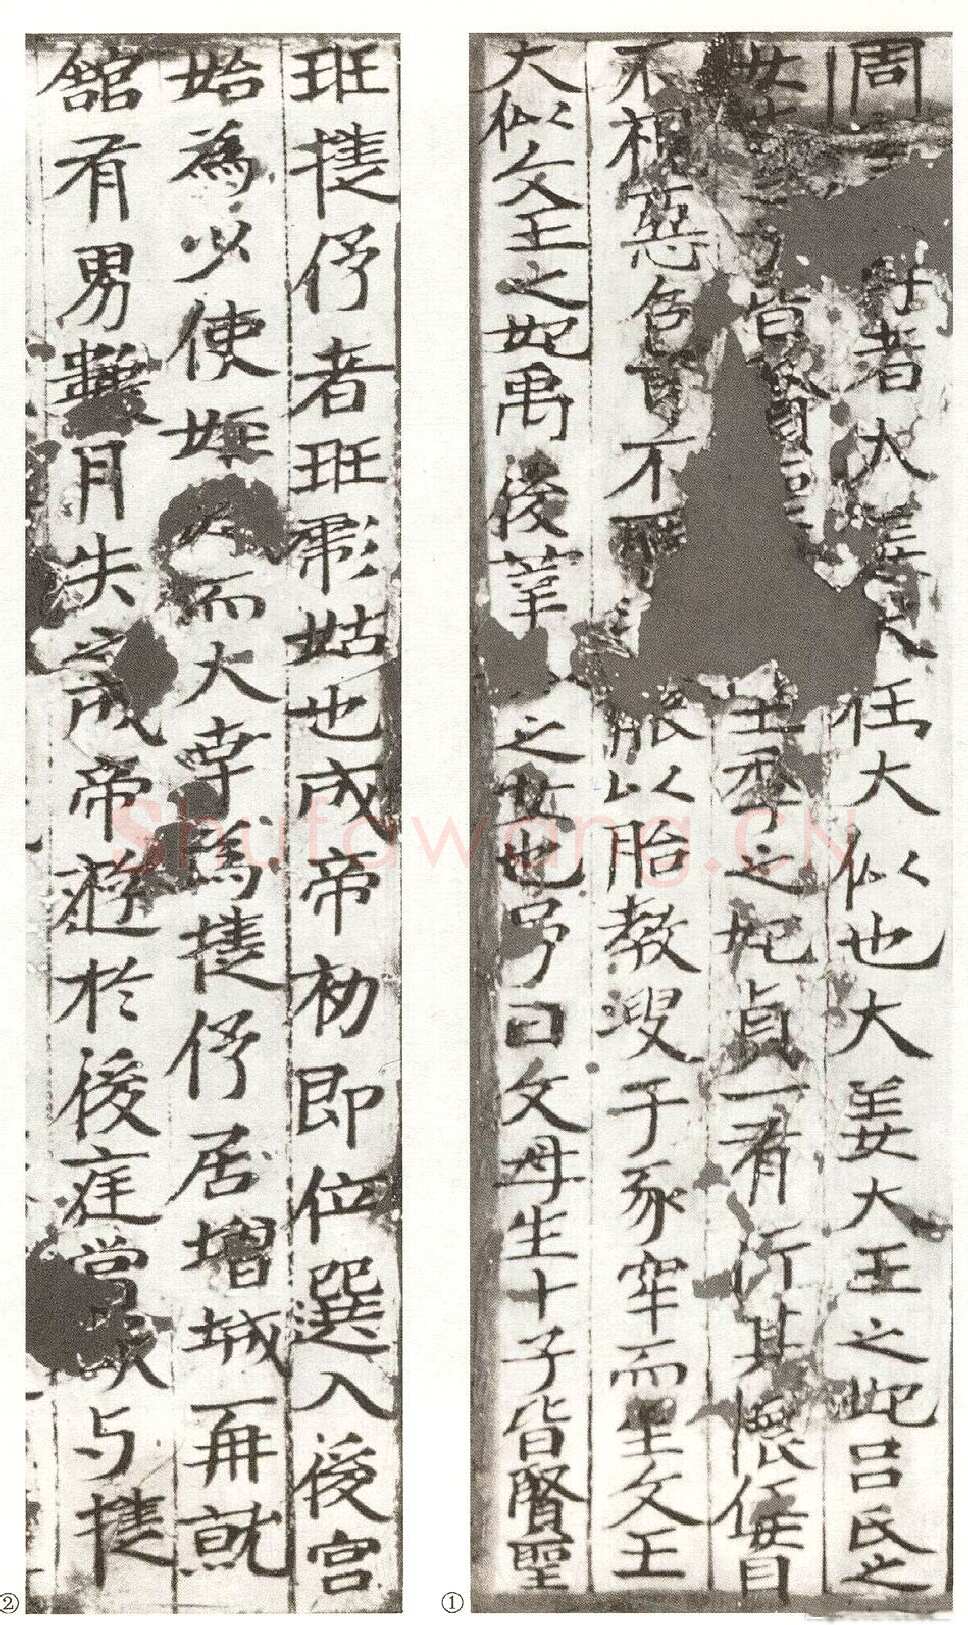 周 者大姜大任大似也大姜大王之妃吕氏之
女 皆 王季之妃貞一有行其懷任目
不視惡色耳不 以胎教溲于豕牢而生文王
大似文王之妃禹後莘 之女也号曰文母生十子皆賢聖
①
班㨗伃者班彪姑也成帝初即位選入後宫
始為少使 而大幸為㨗伃居增城再就
舘有男數月失之成帝遊於後庭嘗欲与㨗
②
Shufawang.CN